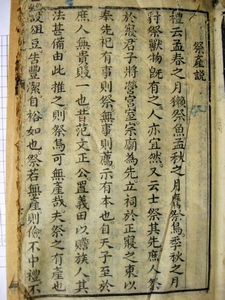 祭產說
禮云孟春之月獺祭魚孟秋之月鷹祭鳥季秋之月
豺祭獸物旣有之人亦宜然又云士祭其先庶人祭
於寢君子將營宮室宗廟為先立祠於正寢之東以
奉先祀有事則祭無事則薦示有本也自天子至於
庶人無貴賤一也昔范文正公置義田以贍族人其
法甚備由此推之則祭焉可無產哉夫祭之有產也
俎豆吉豐潔自裕如也祭若無產則儉不中禮不